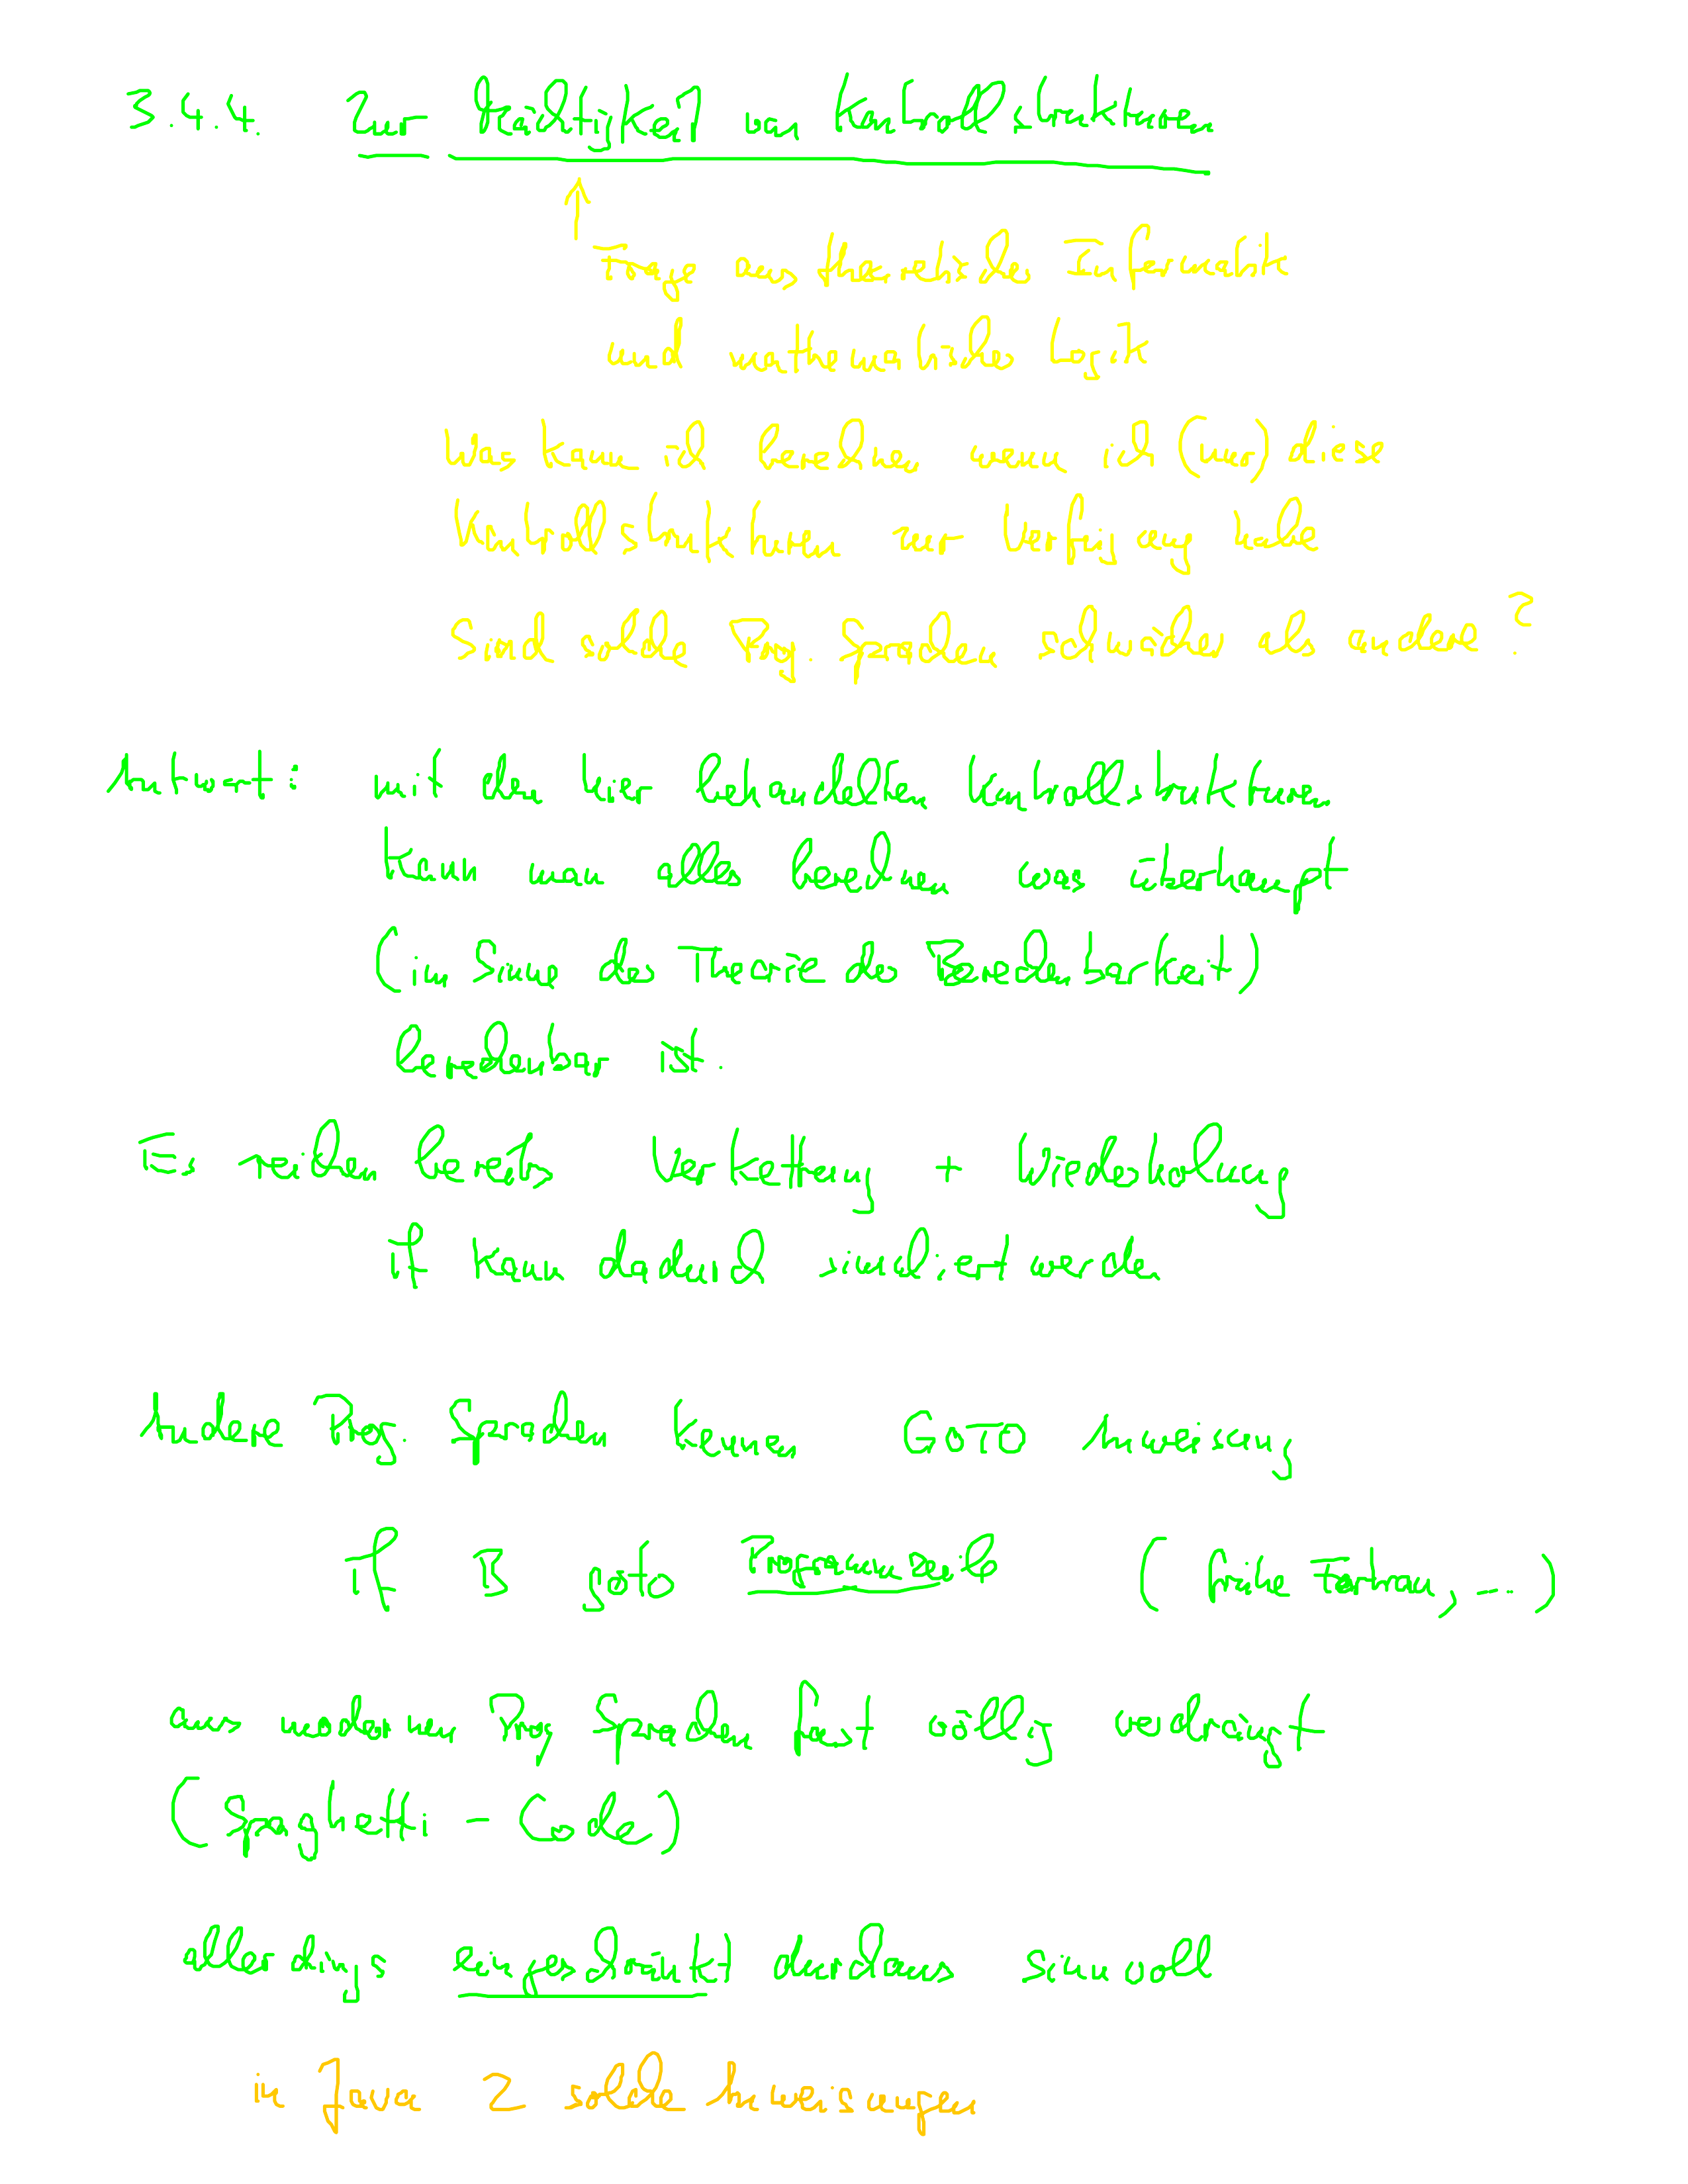 3.4.4. Zur Mächtigkeit von Kontrollstrukturen
Frage aus theoretischer Informatik
und mathematischer Logik
Was kann ich berechnen wenn ich (nur) diese
Kontrollstrukturen zur Verfügung habe
Sind solche Prog. Sprachen schwächer als andere?
Antwort: mit den hier behandelten Kontrollstrukturen
kann man alles berechnen was überhaupt
(im Sinne der Theorie der Berechenbarkeit)
berechenbar ist.
Es reichen bereits Verkettung + Wiederholung
if kann dadurch simuliert werden
Andere Prog. Sprachen kennen GOTO Anweisung
if B goto Programmzeile (frühe Fortran, ...)
aus modernen Prog Sprachen fast völlig verdrängt
(Spaghetti - Code)
allerdings eingeschränkt durchaus sinnvoll
in Java 2 solche Anweisungen